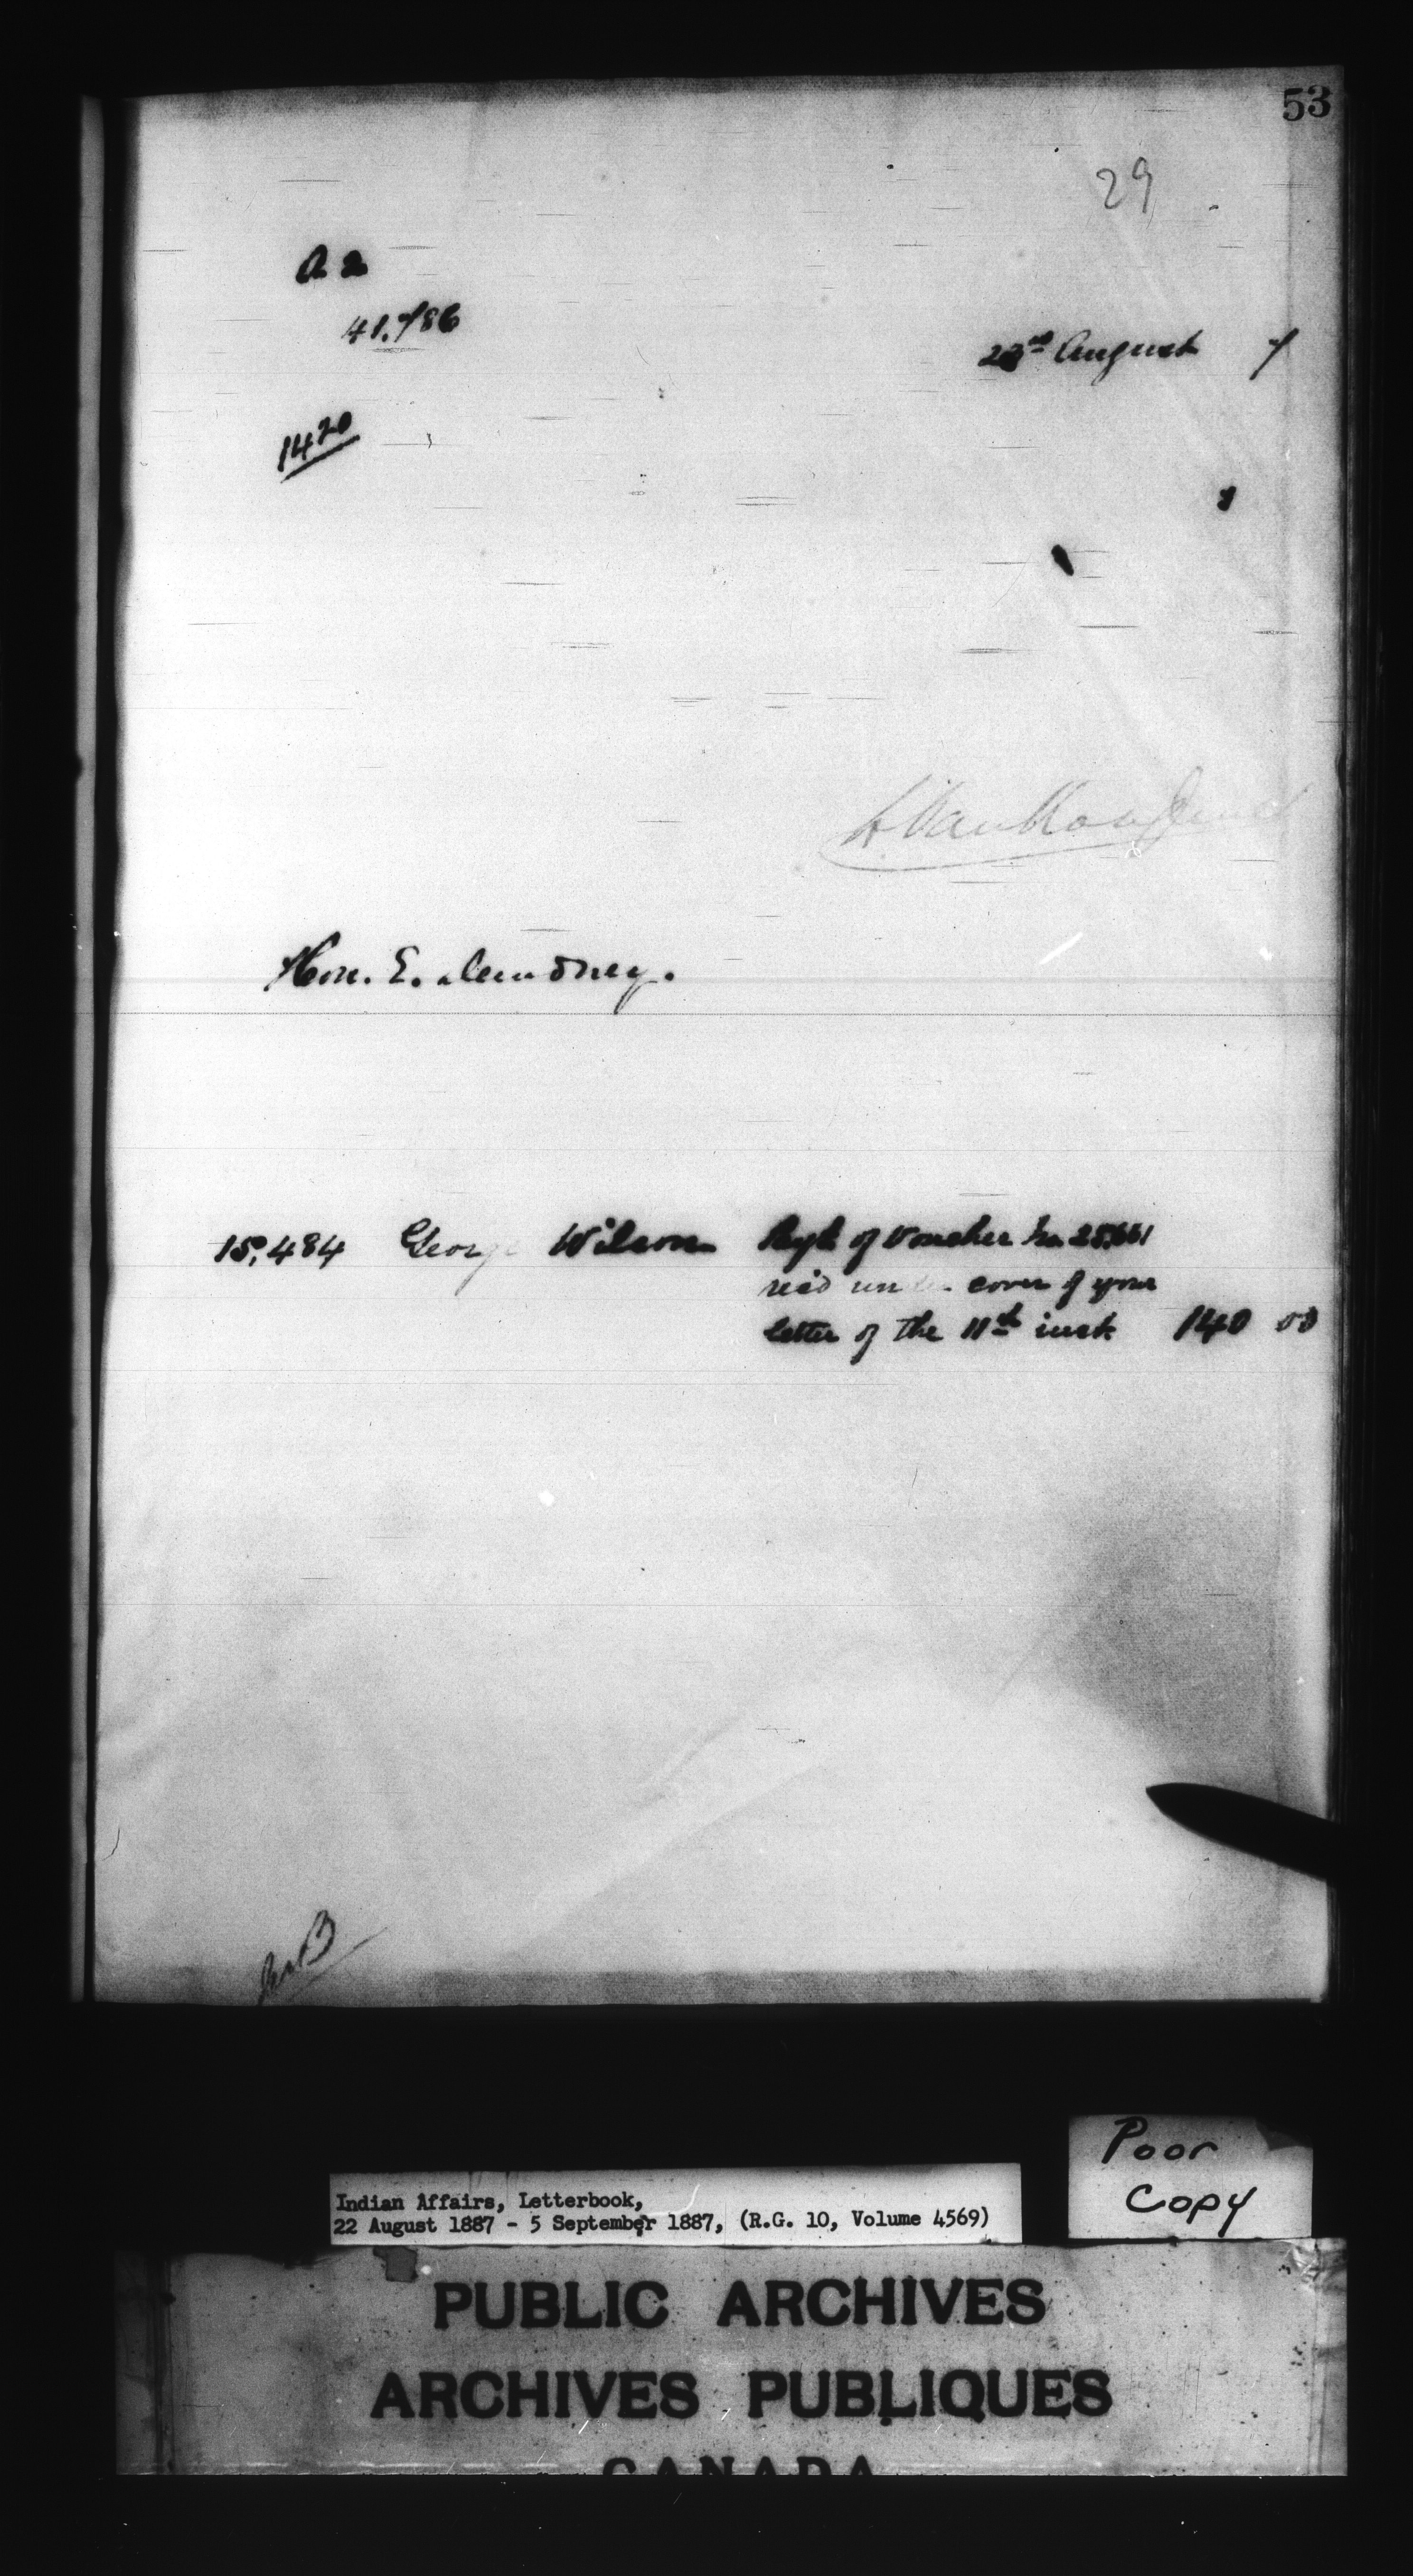 53
29
A 2
41.786
23rd August 7
1420
L. Vankoughnet
Hon. E. Dewdney.
15,484 George Wilson Payt of Voucher No. 25,661
rec'd under cover of your
letter of the 11th inst 140 00
Poor
Copy
Indian Affairs, Letterbook,
22 August 1887 - 5 September 1887, (R.G. 10, Volume 4569)
PUBLIC ARCHIVES
ARCHIVES PUBLIQUES
CANADA